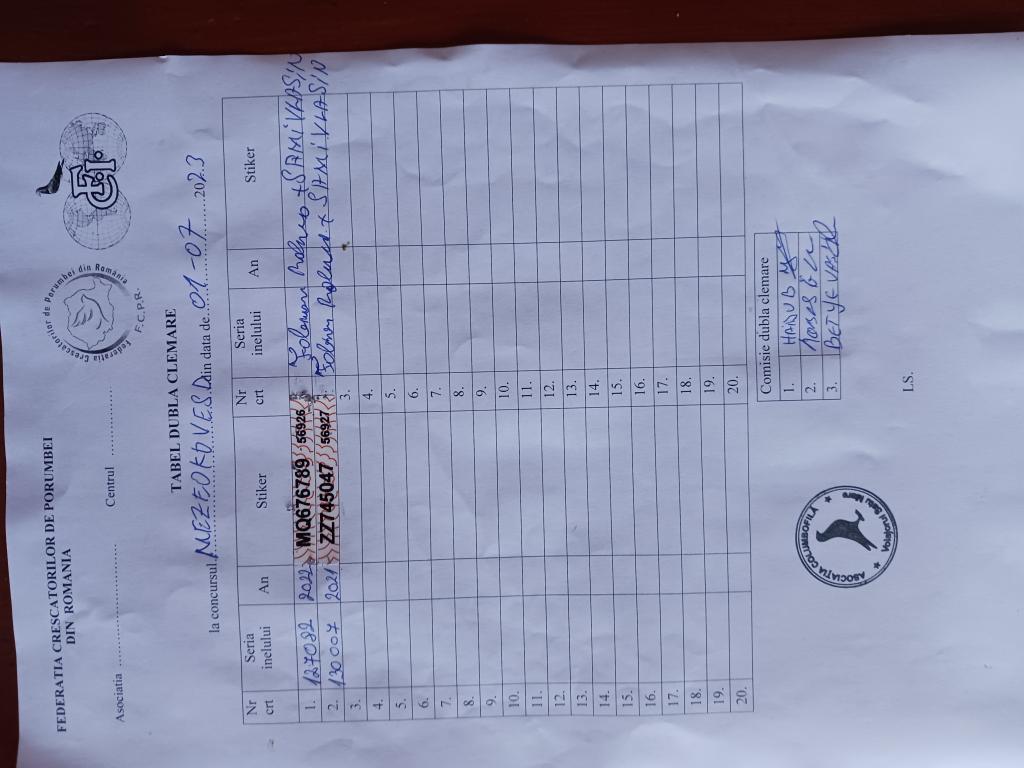 FEDERATIA CRESCATORILOR DE PORUMBEI
DIN ROMANIA
Asociatia .................... Centrul ....................
Federatia Crescatorilor de Porumbei din România
F.C.P.R.
TABEL DUBLA CLEMARE
la concursul MEZEOKOVESD din data de 01-07 2023
Nr crt Seria inelului An Stiker Nr crt Seria inelului An Stiker
1. 127082 2022 MQ676789 56926
2. 130007 2021 ZZ745047 56927
3. 3.
4. 4.
5. 5.
6. 6.
7. 7.
8. 8.
9. 9.
10. 10.
11. 11.
12. 12.
13. 13.
14. 14.
15. 15.
16. 16.
17. 17.
18. 18.
19. 19.
20. 20.
Comisie dubla clemare
1.
2.
3.
ASOCIAȚIA COLUMBOFILĂ
Voiajorul Satu Mare
L.S.